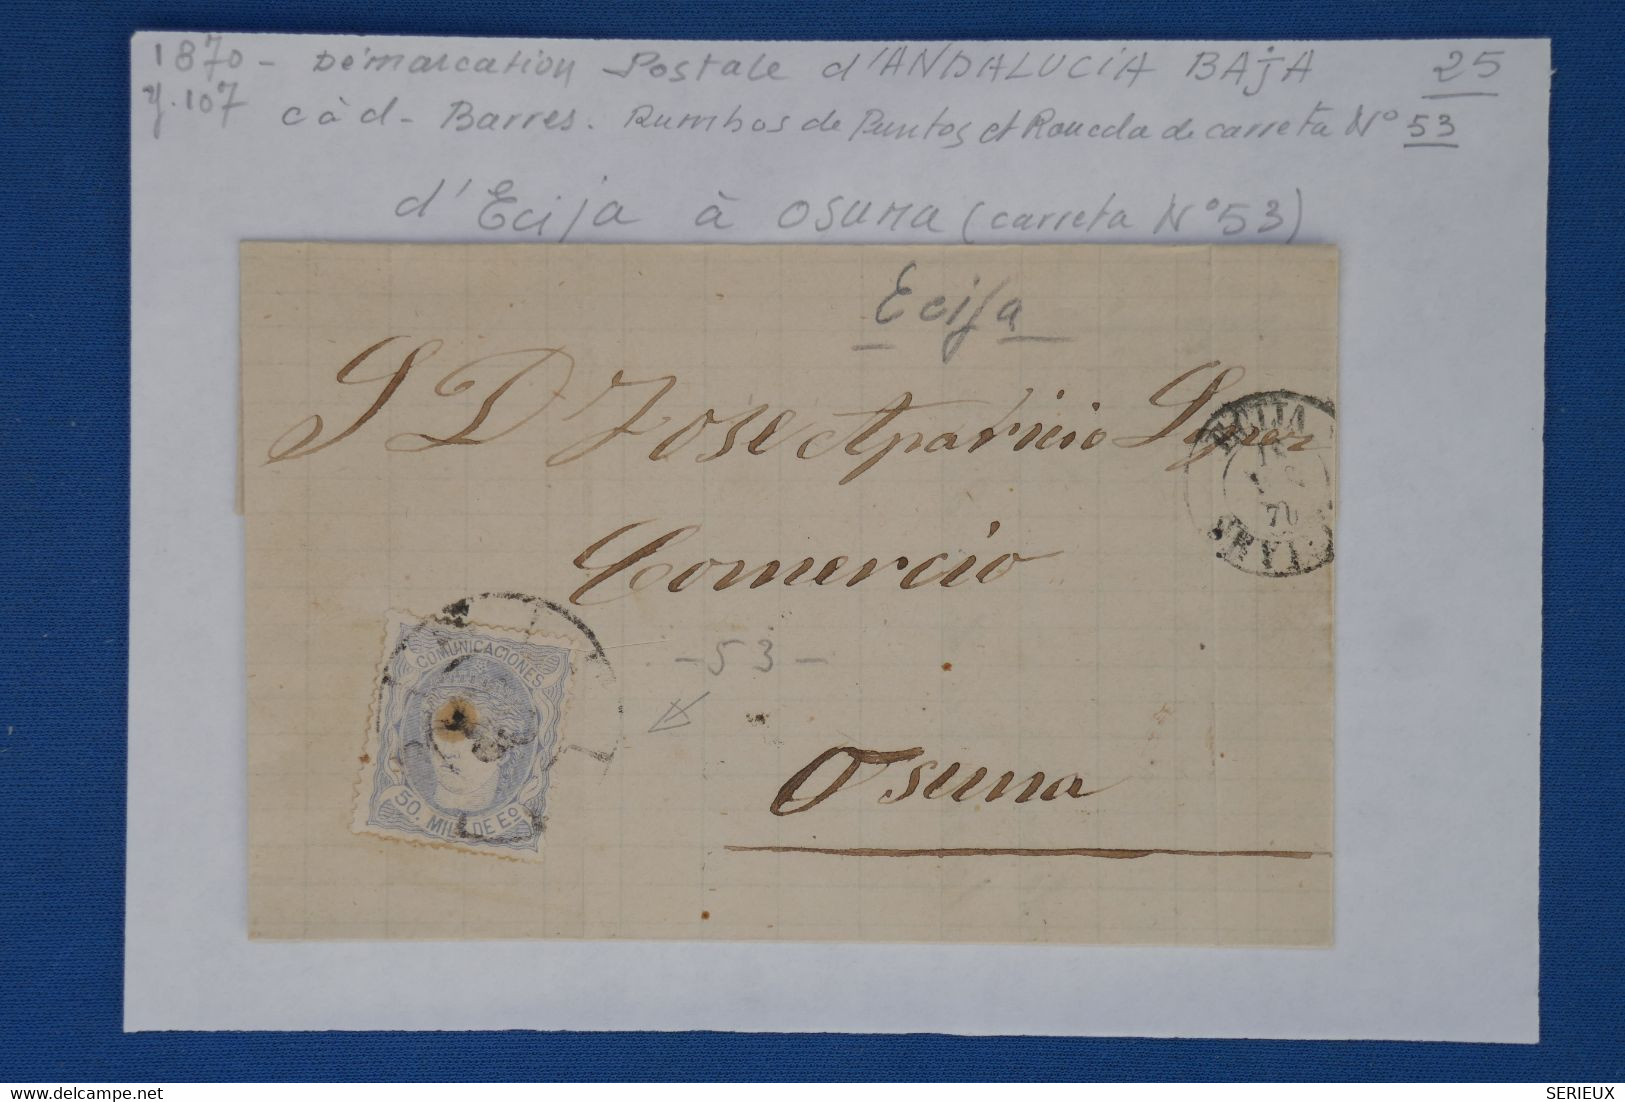 1870 - Démarcation Postale d'ANDALUCIA BAjA 25
y. 107 c à d - Barres. Rumbos de Puntos et Roueda de carreta N° 53
d'Ecija à OSUNA (carreta N° 53)
Ecija
S D José Aparicio
ECIJA
70
Comercio
- 53 -
COMUNICACIONES
50. MILS DE Eº
Osuna
SERIEUX